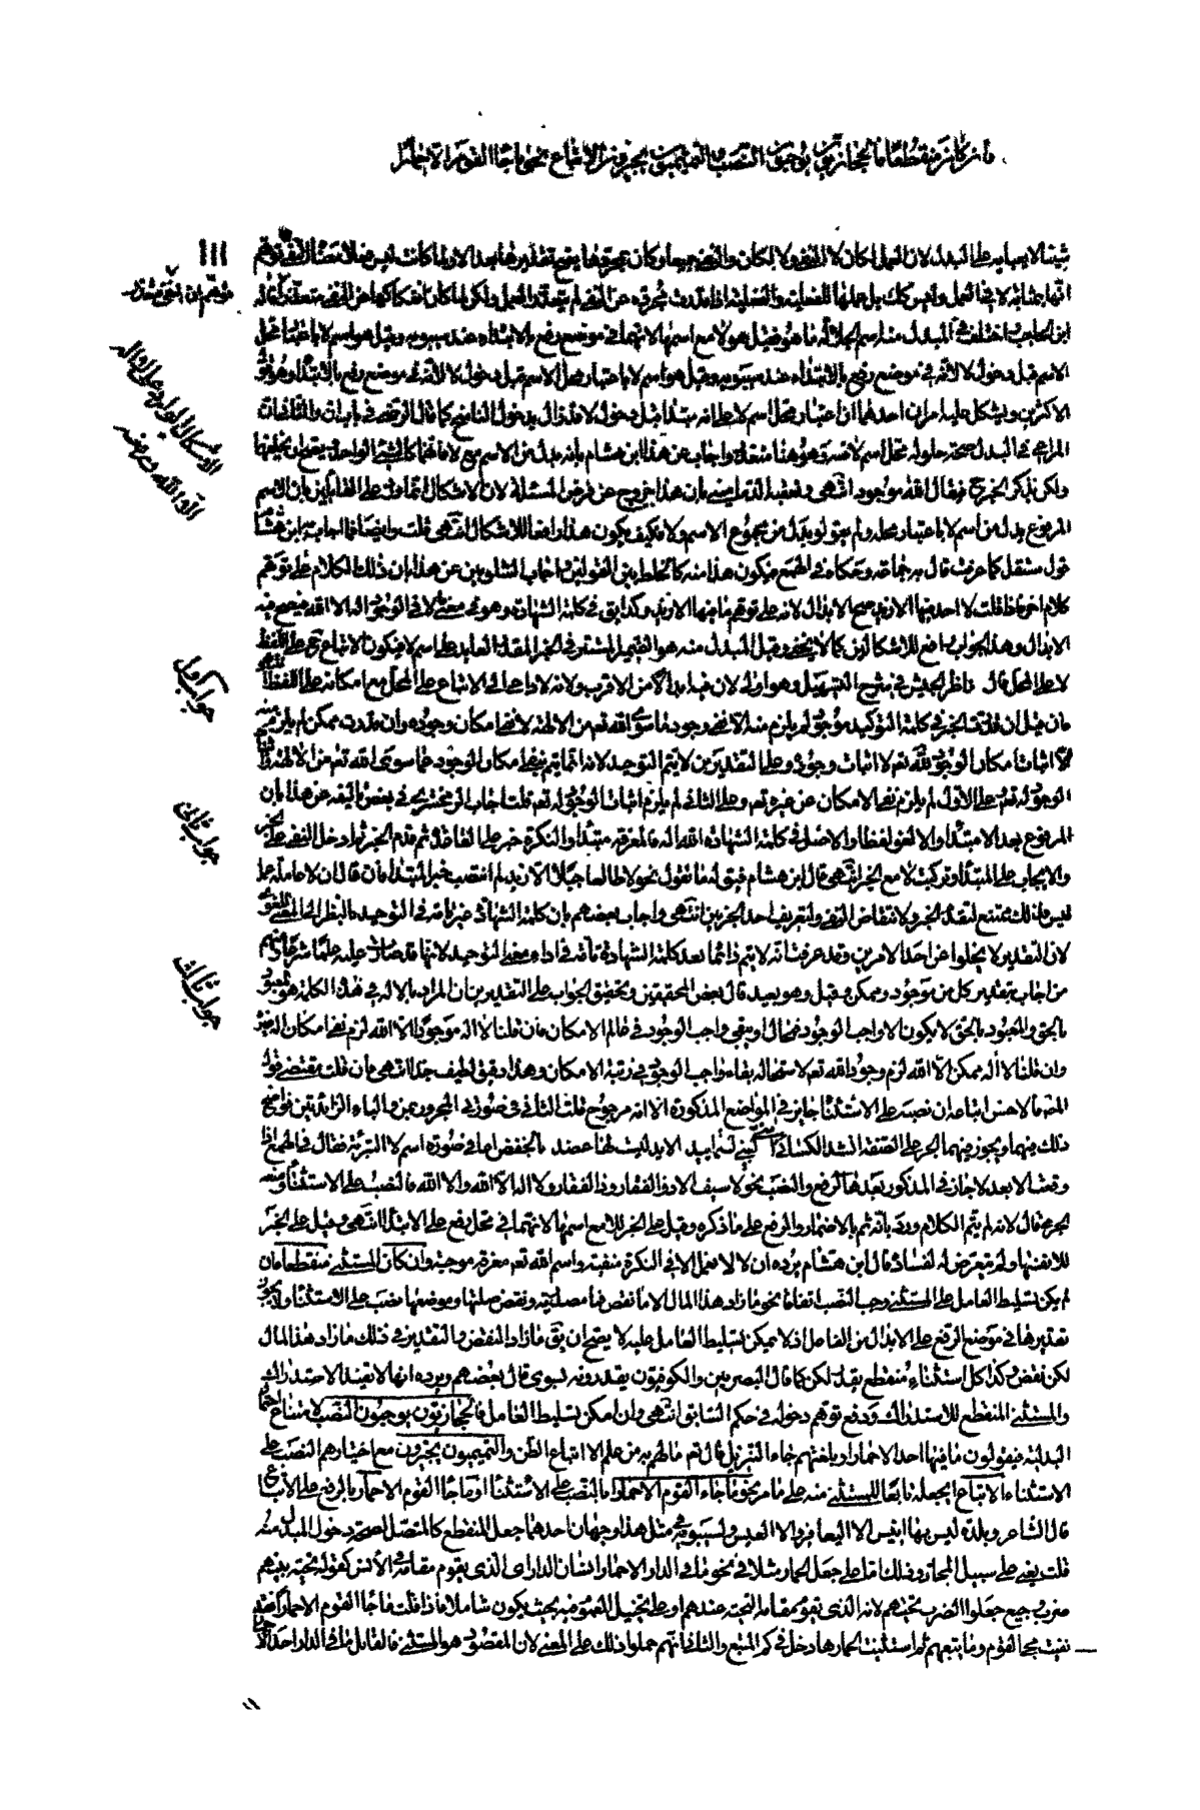 فان كان منقطعا فالحجازيون يوجبون النصب والتميميون يجيزون الاتباع نحو ما جاء القوم الا حمار
شيئا الا يعبا به على البدل لان العمل لكان لا للنفي ولا لكان والنفي جميعا وكان
انها بمثابة لا في العمل وليس كك بل عملها للفعلية والفعلية اذا قدرت مجردة عن النفي لم يتعذر العمل ولكن لما كان
ابن الحاجب اختلف في المبدل منه اسم الجلالة ما هو فقيل هو لا مع اسمها لانهما في موضع رفع بالابتداء عند سيبويه وقيل هو اسم لا باعتبار محل
الاسم قبل دخول لا لانه في موضع رفع بالابتداء عند سيبويه وقيل هو اسم لا باعتبار محل الاسم قبل دخول لا لانه في موضع رفع بالابتداء وهو قول
الاكثرين ويشكل عليه امران احدهما ان اعتبار محل اسم لا على انه مبتدا قبل دخول لا قد زال بدخول الناسخ كما قال الرضي في باب ان والثاني ان
المراعى في البدل صحة حلوله محل اسم لا وهو هنا متعذر واجاب عن هذا ابن هشام بانه بدل من الاسم مع لا فانهما كالشيء الواحد
ولكن يذكر الخبر ح فيقال الله موجود انتهى وتعقبه الدماميني بان هذا خروج عن فرض المسئلة لان الاشكال انما ورد على القائلين بان الاسم
المرفوع بدل من اسم لا باعتبار محله ولم يقولوا بدل من مجموع الاسم ولا فكيف يكون هذا رافعا للاشكال انتهى قلت وايضا فما اجاب به ابن هشام
قول مستقل كما عرفت قال به جماعة وحكاه في الهمع فيكون هذا منه كالخلط بين القولين واجاب الشلوبين عن هذا بان ذلك الكلام على توهم
كلام اخر فاذا قلت لا احد فيها الا زيد صح الابدال لانه على توهم ما فيها الا زيد وكذا يق في كلمة الشهادة وهو في معنى لا في الوجود اله الا الله فيصح فيه
الابدال وهذا الجواب رافع للاشكالين كما لا يخفى وقيل المبدل منه هو الضمير المستتر في الخبر المقدر العايد على اسم لا فيكون الاتباع ح على اللفظ
لا على المحل قال ناظر الجيش في شرح التسهيل وهو اولى لان فيه ابدالا من الاقرب ولانه لا داعي الى الاتباع على المحل مع امكانه على اللفظ انتهى
فان قيل ان قدرت الخبر في كلمة التوحيد موجود لم يلزم منه الا نفي وجود ما سوى الله تعه من الالهة لا نفي امكان وجوده وان قدرت ممكن لم يلزم منه
الا اثبات امكان الوجود لله تعه لا اثبات وجوده وعلى التقديرين لا يتم التوحيد لانه انما يتم بنفي امكان الوجود عما سوى الله تعه من الالهة واثبات
الوجود له تعه وعلى الاول لم يلزم نفي الامكان عن غيره تعه وعلى الثاني لم يلزم اثبات الوجود له تعه قلت اجاب الزمخشري في بعض تاليفه عن هذا بان
المرفوع بعد الا مبتدا والا لغو لفظا والاصل في كلمة الشهادة الله اله فالمعرفة مبتدا والنكرة خبر على القاعدة ثم قدم الخبر ثم ادخل النفي على الخبر
والايجاب على المبتدا وركبت لا مع الخبر انتهى قال ابن هشام فيق له فما تقول نحو لا طالعا جبلا الا زيد لم انتصب خبر المبتدا فان قال ان لا عاملة عمل
ليس فذلك ممتنع لتقدم الخبر ولانتقاض النفي ولتعريف احد الجزئين انتهى واجاب بعضهم بان كلمة الشهادة غير تامة في التوحيد بالنظر الى المعنى اللغوي
لان التقدير لا يخلوا عن احد الامرين وقد عرفت انه لا يتم ذا انما تعد كلمة الشهادة تامة في اداء معنى التوحيد لانها قد صارت عليه علما شرعا ومنهم
من اجاب بتقدير كل من موجود وممكن وقيل وهو بعيد قال بعض المحققين وتحقيق الجواب على التقديرين ان المراد بالاله في هذه الكلمة هو المعبود
بالحق والمعبود بالحق لا يكون الا واجب الوجود فمحال ان يبقى واجب الوجود في عالم الامكان فان قلنا لا اله موجود الا الله لزم نفي امكان اله غيره
وان قلنا لا اله ممكن الا الله لزم وجود الله تعه لاستحالة بقاء واجب الوجود في رتبة الامكان وهذا دقيق لطيف جدا انتهى فان قلت مقتضى قول
المصنف الاحسن اتباعه ان نصبه على الاستثناء جايز في المواضع المذكورة الا انه مرجوح قلت الثاني في صورتي المجرور بمن والباء الزائدتين
ذلك منهما ويجوز فيهما الجر على الصفة انشد الكسائي ابني لبينى لستم بيد الا يد ليست لها عضد بالخفض اما في صورة اسم لا التبرئة فقال في الهمع اذا
وقعت الا بعد لا جاز في المذكور بعدها الرفع والنصب نحو لا سيف الا ذو الفقار وذا الفقار ولا اله الا الله والا الله فالنصب على الاستثناء ومنعه
الجرمي قال لانه لم يتم الكلام ورد بانه تم بالاضمار والرفع على ما ذكره وقيل على الخبر للا مع اسمها لانهما في محل رفع على الابتداء انتهى وقيل على الخبر
للا نفسها ولم يتعرض له لفساده قال ابن هشام يرده ان لا لا تعمل الا في النكرة منفية واسم الله تعه معرفة موجبة وان كان المستثنى منقطعا فان
لم يكن تسليط العامل على المستثنى وجب النصب اتفاقا نحو ما زاد هذا المال الا ما نقص فما مصدرية ونقص صلتها وموضعها نصب على الاستثناء ولا يجوز
تقديرها في موضع الرفع على الابدال من الفاعل اذ لا يمكن تسليط العامل عليه لا يصح ان يق ما زاد النقص والتقدير في ذلك ما زاد هذا المال
لكن نقص وكذا كل استثناء منقطع يقدر لكن كما قال البصريين والكوفيون يقدرونه بسوى قال بعضهم ويرده انها لا تفيد الاستدراك
والمستثنى المنقطع للاستدراك ودفع توهم دخوله في حكم السابق انتهى وان امكن تسليط العامل فالحجازيون يوجبون النصب لامتناع
البدلية فيقولون ما فيها احد الا حمارا وبلغتهم جاء التنزيل قال تعه ما لهم به من علم الا اتباع الظن والتميميون يجيزون مع اختيارهم النصب على
الاستثناء الاتباع اي جعله تابعا للمستثنى منه على ما مر نحو ما جاء القوم الا حمارا بالنصب على الاستثناء او ما جاء القوم الا حمار بالرفع على الاتباع
قال الشاعر وبلدة ليس بها انيس الا اليعافير والا العيس ولسيبويه في مثل هذا وجهان احدهما جعل المنقطع كالمتصل لصحة دخول المبدل منه
قلت يعني على سبيل المجاز وذلك اما على جعل الحمار مثلا في نحو ما في الدار الا حمار انسان الدار اي الذي يقوم مقامه في الانس كقوله تحية بينهم
ضرب وجيع جعلوا الضرب تحيتهم لانه الذي يقوم مقام التحية عندهم او على تخييل العموم فيه بحيث يكون شاملا فاذا قلت ما جاء القوم الا حمار
نفيت مجئ القوم وما يتبعهم ثم استثنيت الحمار دخل في حكم المتبع والثاني انهم حملوا ذلك على المعنى لان المقصود هو المستثنى فالقائل ما في الدار احد الا
١١١
جواب اول
جواب ثاني
جواب ثالث